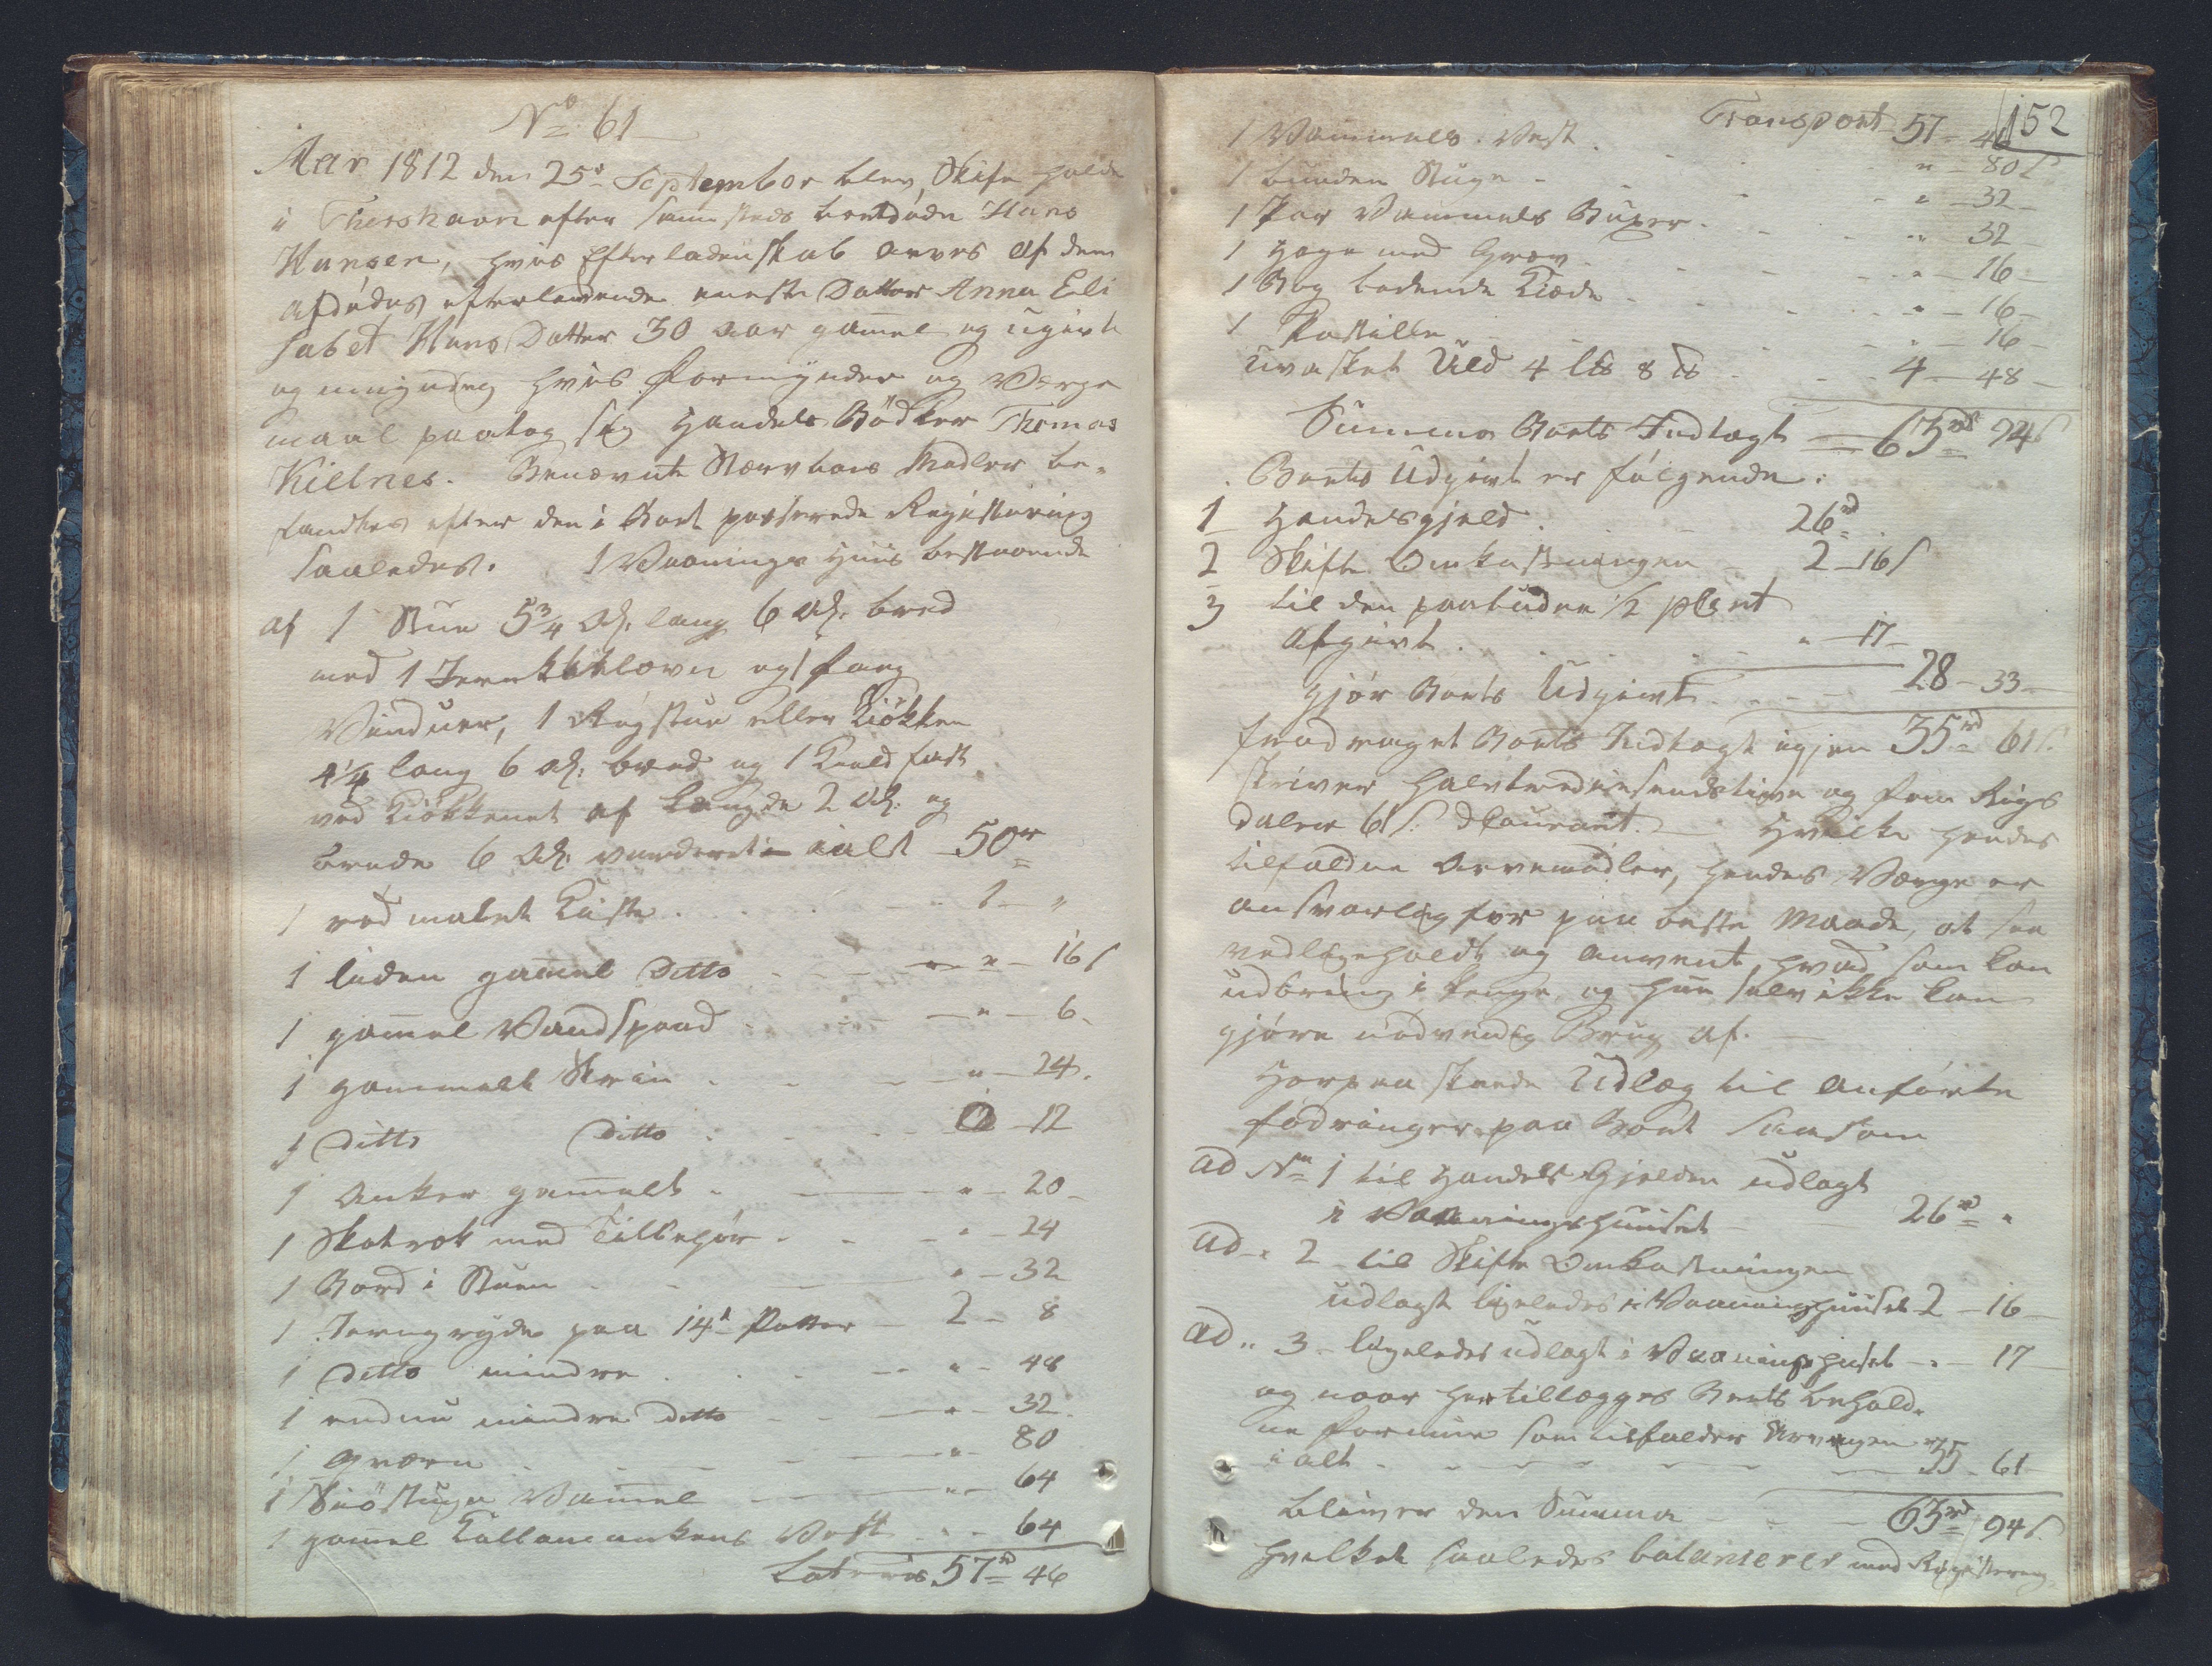 No 61
Aar 1812 den 25de September blev Skifte holdt
i Thorshavn efter sammesteds bortdøde Hans
Hansen, hvis Efterladenskab arves af dem
afdødes efterlevende eneste Datter Anna Eli
sabet Hans Datter 30 Aar gam̄el og ugivt
og umyndig hvis Formynder og Værge
maal paatog sig Handels Bødker Thomas
Killnes. Benævnte Stervboes Midler be-
fandtes efter den i Boet passerede Registering
saaledes. 1 Vaanings Huus bestaaende
af 1 Stue 5¾ Al. lang 6 Al. bred
med 1 Jernkakelovn og 1 fang
Vinduer, 1 Røgstue eller Kiökken
4¼ lang 6 Al. bred og 1 fast
ved Kiökkenet af Længde 2 Al. og
brede 6 Al. vurderet ialt 50 rd
1 rød malet Kiste 1 - "
1 liden gam̄el Ditto " - 16 s
1 gam̄el Vandspand " - 6
1 gammelt Skrin " - 24
1 Ditto Ditto - 12
1 Anker gam̄elt " - 20
1 Skotrok med Tilbehør " - 24
1 Bord i Stuen " - 32
1 Jerngryde paa 14 Potter 2 - 8
1 Ditto mindre " - 48
1 endnu mindre Ditto " - 32
1 Qværn " - 80
1 Siöstuge Vam̄el " - 64
1 gam̄el Kallemankens Vest " - 64
Lateris 57 rd 46
152
Transport 57 - 46
1 Vammels Vest " - 80 s
1 bunden Stuge " - 32
1 Par Vammels Buxer " 32
1 Hage med Grev " - 16
1 Bog bedende Kiæde " - 16
1 Postille " - 16
Uvasket Uld 4 l℔ 8 ℔ 4 - 48
Summa Boets Indtægt 63 rd 94 s
Boets Udgivt er følgende:
1 Handelsgjeld 26 rd
2 Skifte Omkostningen 2 - 16 s
3 til den paabudne ½ pCent
Afgivt " - 17
gjør Boets Udgivt 28 - 33
fradraget Boets Indtægt igjen 35 rd 61 s
skriver halvtrediesindstive og fem Rigs
daler 61 s. D Courant. Hvilke hendes
tilfaldne Arvemidler, hendes Værge er
ansvarlig for paa beste Maade, at see
vedligeholdt og anvent, hvad som kan
udbring i Penge og hun selv ikke kan
gjöre nødvendig Brug af.
Herpaa skeede Udlæg til anførte
fodringer paa Boet saasom
ad No 1 til Handels Gjelden udlagt
i Vaaningshuuset 26 rd "
ad " 2 til Skifte Omkostningen
udlagt ligeledes i Vaaninghuuset 2 - 16
ad " 3 ligeledes udlagt i Vaaningshuset " - 17
og naar hertillægges Boets behold-
ne Formue som tilfalder Arvingen
ialt 35 - 61
bliver den Summa 63 rd 94 s.
hvelket saaledes balancerer med Registering